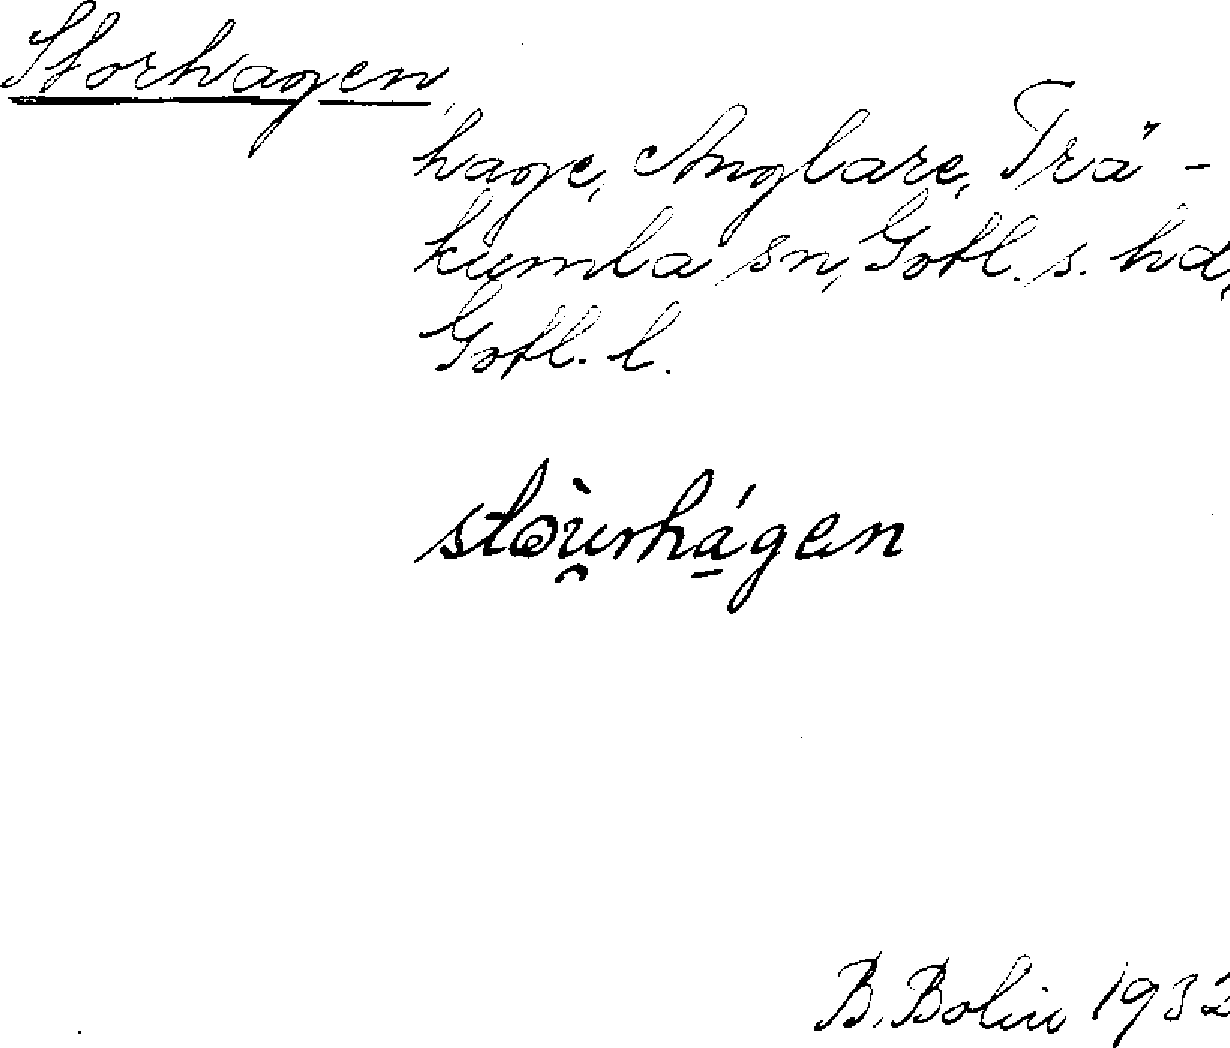 Storhagen,
hage, Anglare, Trä-
kumla sn, Gotl. s. hd,
Gotl. l.
stòu̯rhá̱gen
B. Bolin 1932